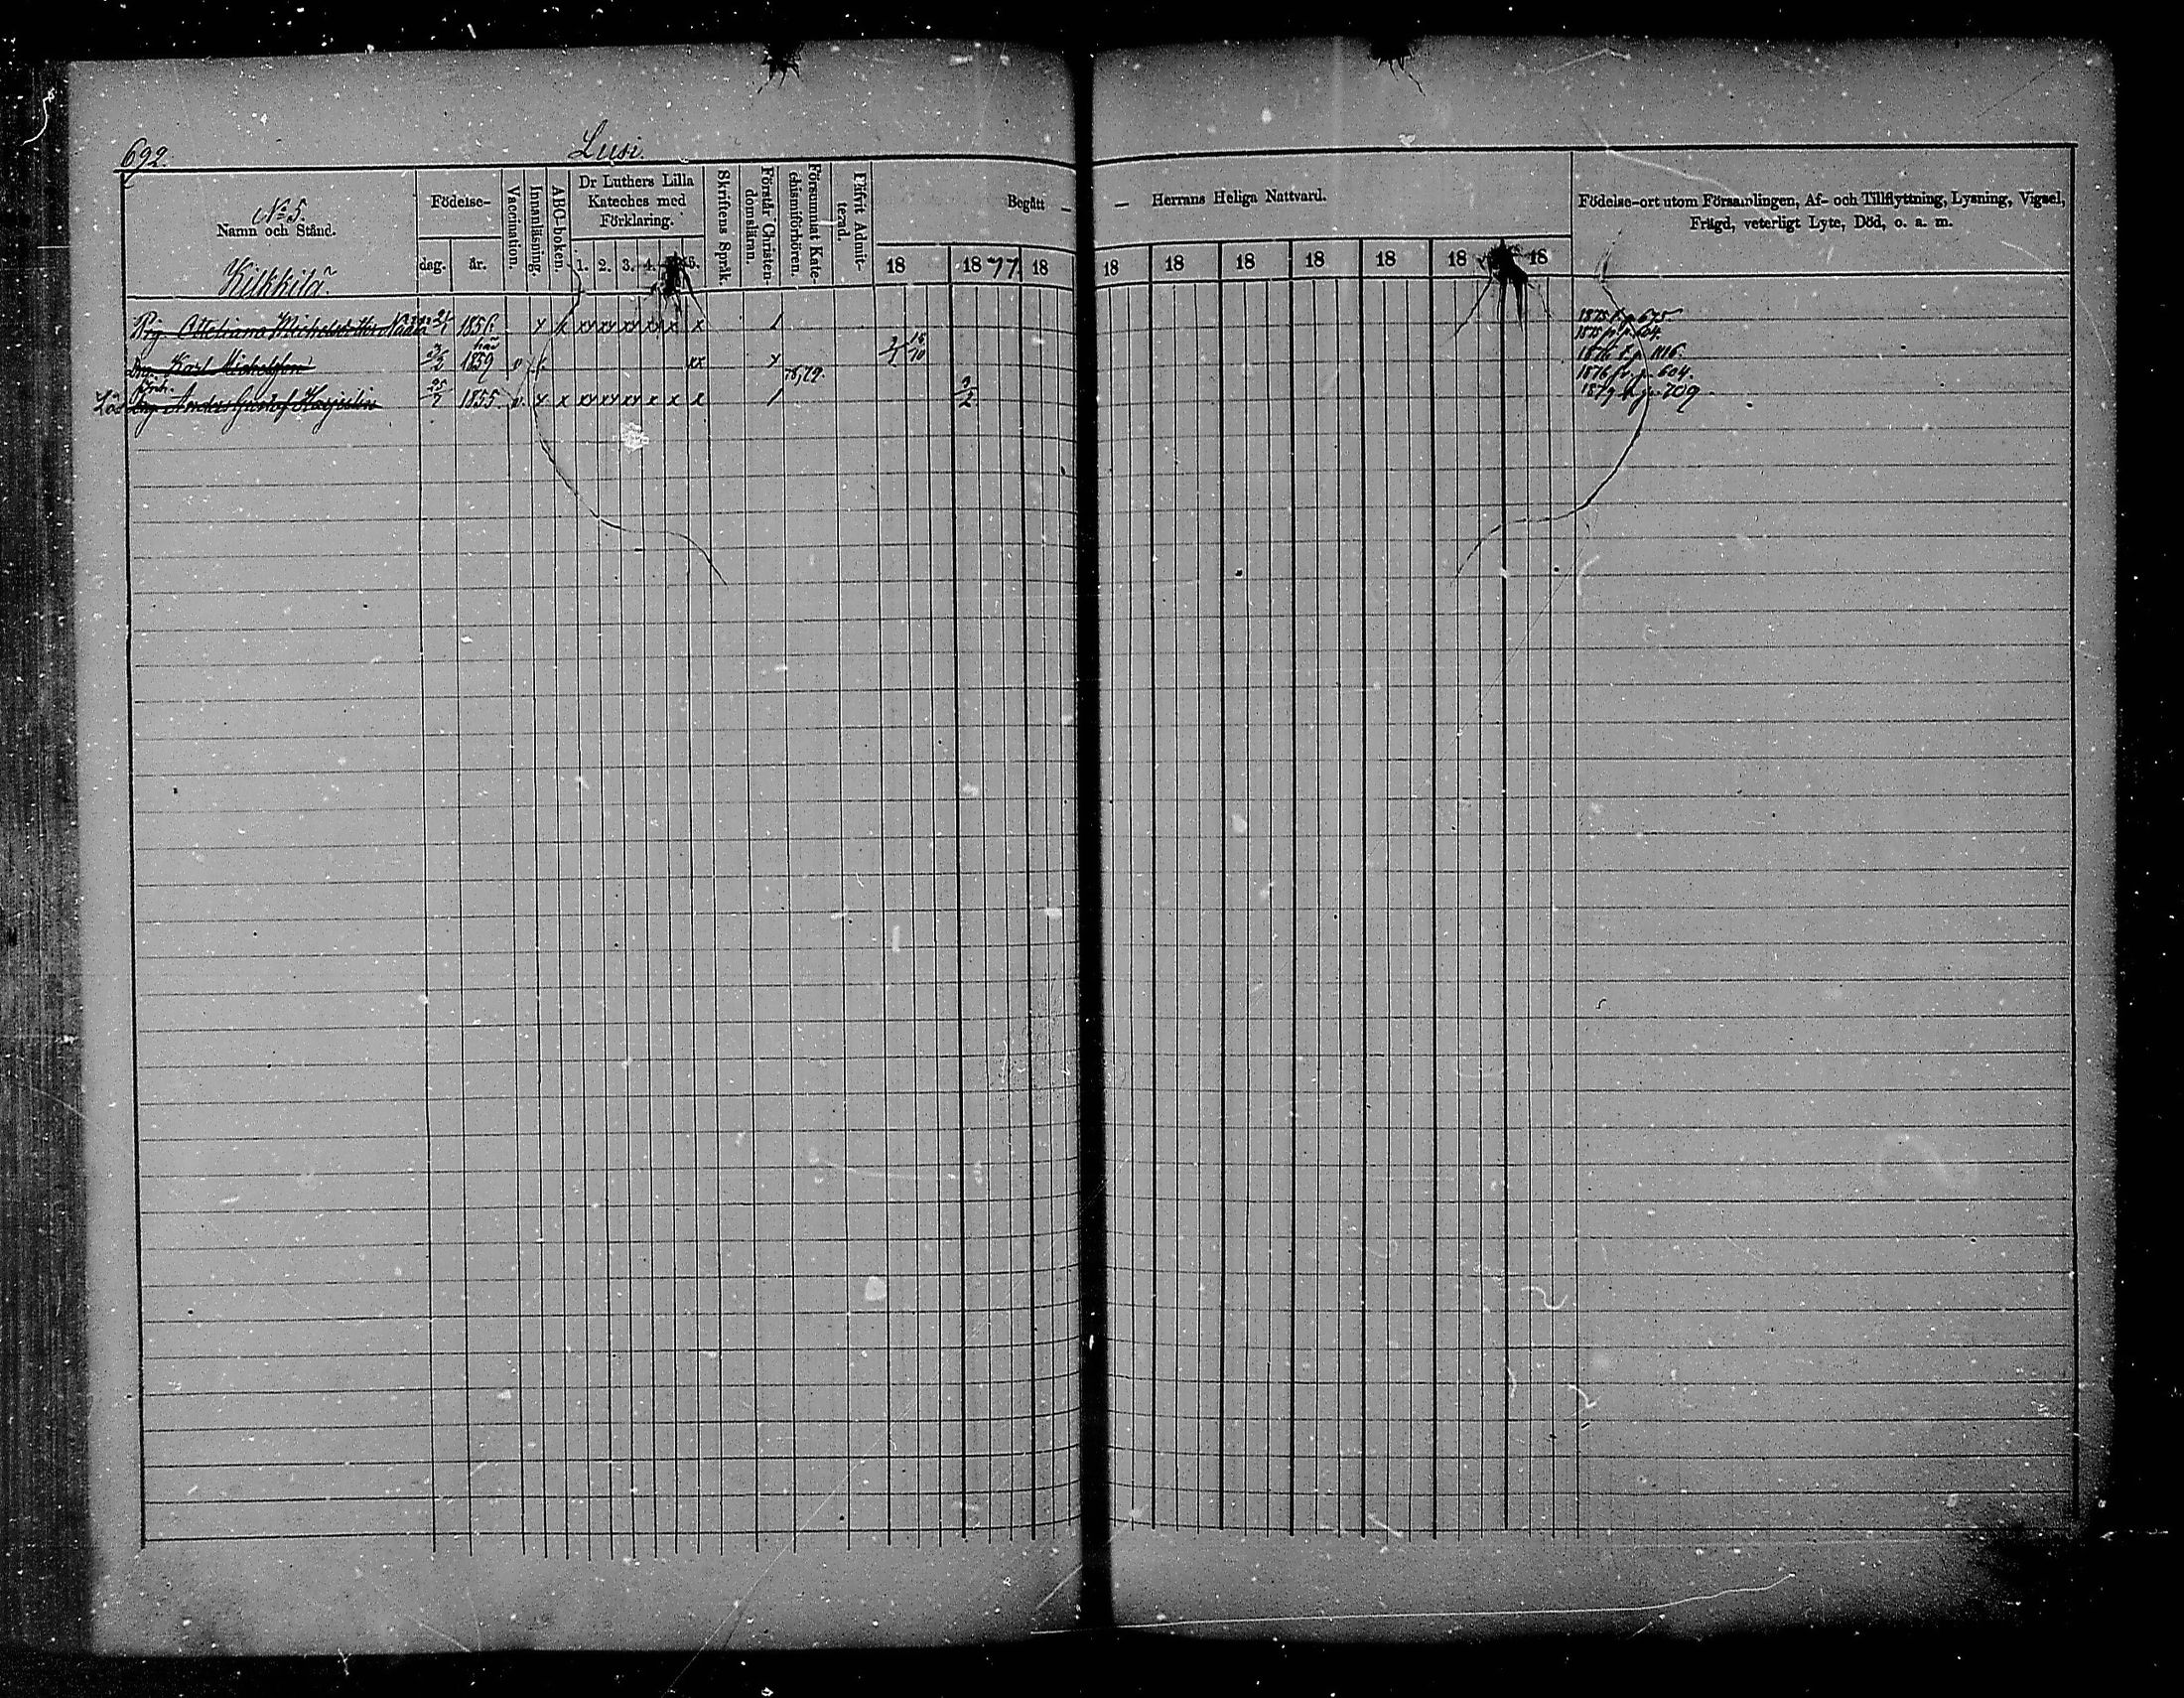 692.
Lusi.
No 5.
Namn och Stånd.
Kilkkilä.
Födelse-
dag.
år.
Vaccination.
Innanläsning.
ABC-boken.
Dr Luthers Lilla
Kateches med
Förklaring.
1. 2. 3. 4. 5.
Skriftens Språk.
Förstår Christen-
domsläran.
Försummat Kate-
chismiförhören.
Blifvit Admit-
terad.
Begått —
— Herrans Heliga Nattvard.
18 1877 18 18 18 18 18 18 18 18
Födelse-ort utom Församlingen, Af- och Tillflyttning, Lysning, Vigsel,
Frägd, veterligt Lyte, Död, o. a. m.
Pig. Michelsd:r 1856 x x xx xx xx xx x x 1875 p. 675
1875 p. 604.
Karl Michelsson 1859 v xx 2/4 18/10 1876 p. 1116.
78,79. 1876 p. 604.
Anders Gustaf 25/7 1855 v. x x xx xx xx x x x 3/2 1879 p. 709